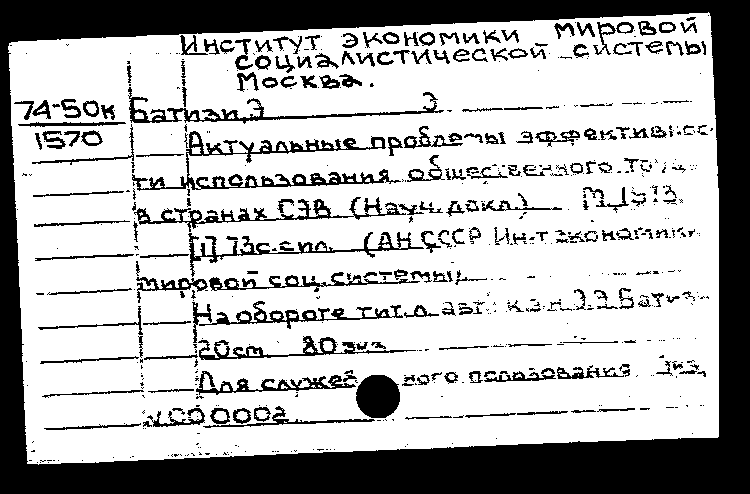 Институт экономики мировой
социалистической системы
Москва.
74-50к Батизи, Э Э
1570
Актуальные проблемы эффективнос
ти использования общественного труда
в странах СЭВ (Науч. докл.) М, 1973.
[1], 73с. с ил. (АН СССР Ин-т экономики
мировой соц. системы).
На обороте тит. л. авт.: к.э.н. Э.Э. Батизи
20см 80 экз
Для служебного пользования Экз.
N 00 0002.